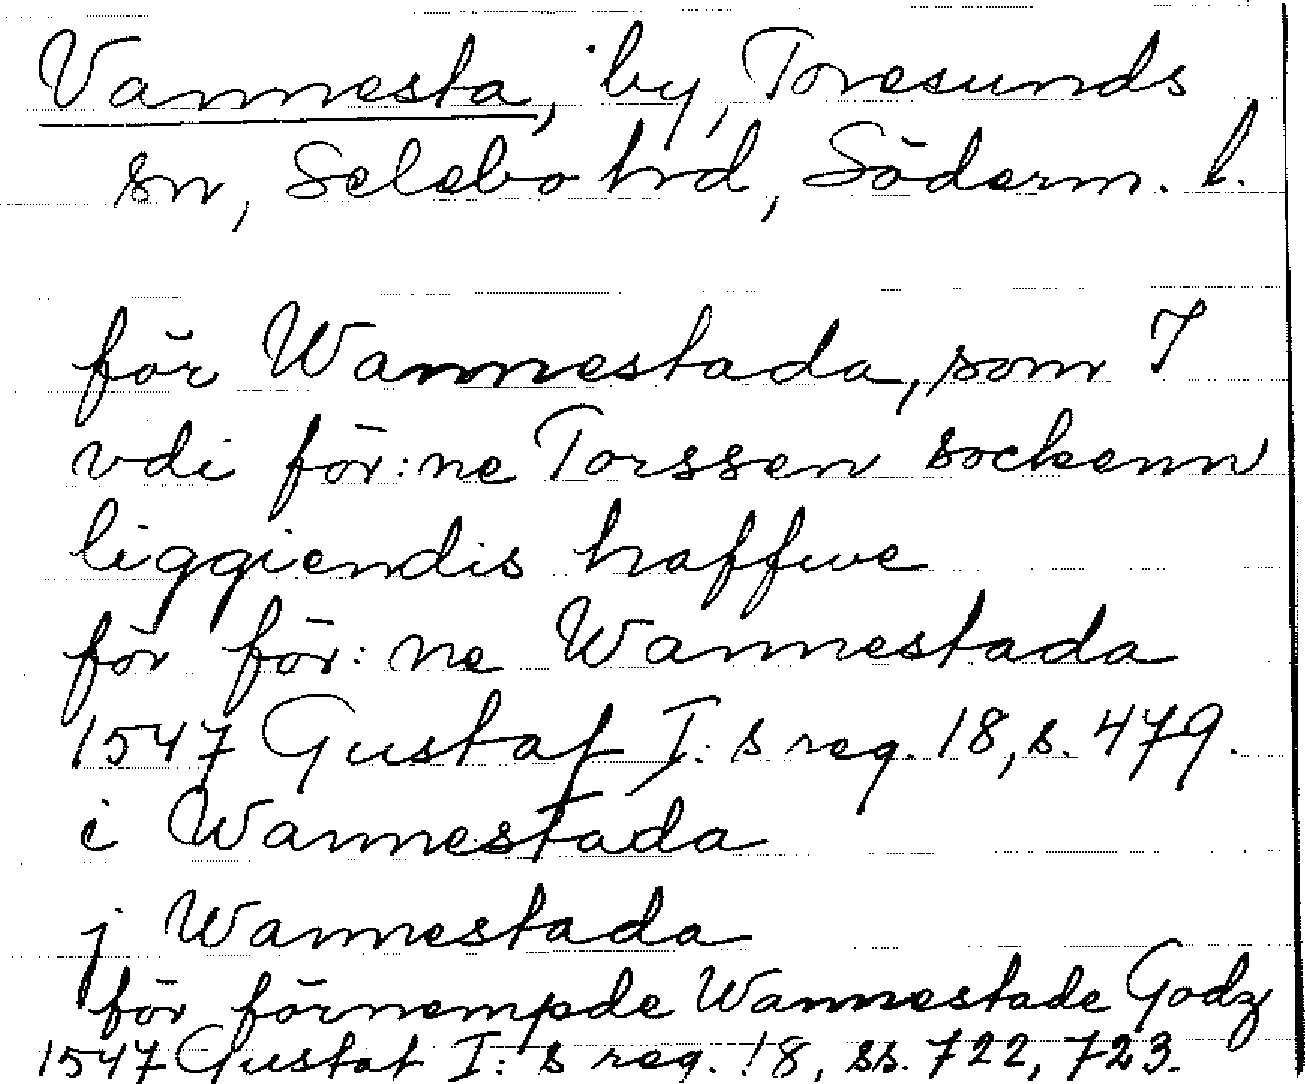 Vannesta, by, Toresunds
sn, Selebo hrd, Söderm. l.
för Wannestada, som I
vdi för:ne Torssen sockenn
liggiendis haffwe
för för:ne Wannestada
1547 Gustaf I:s reg. 18, s. 479.
i Wannestada
j Wannestada
för förnempde Wannestade Godz
1547 Gustaf I:s reg. 18, ss. 722, 723.